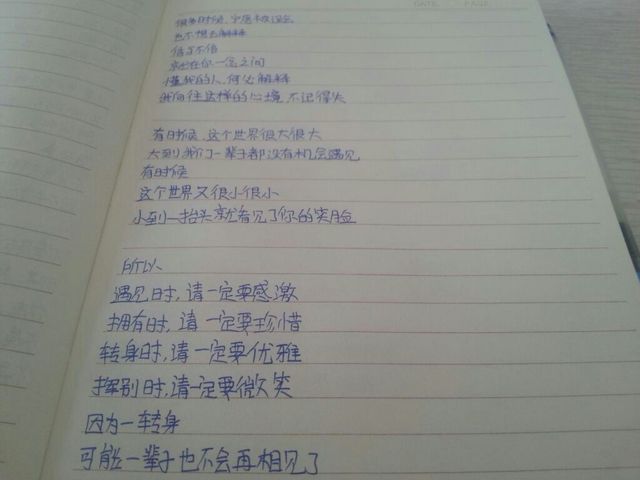 DATE PAGE
很多时候,宁愿被误会
也不想去解释
信与不信
就在你一念之间
懂我的人,何必解释
我向往这样的心境,不记得失
有时候,这个世界很大很大
大到我们一辈子都没有机会遇见
有时候
这个世界又很小很小
小到一抬头就看见了你的笑脸
所以
遇见时,请一定要感激
拥有时,请一定要珍惜
转身时,请一定要优雅
挥别时,请一定要微笑
因为一转身
可能一辈子也不会再相见了